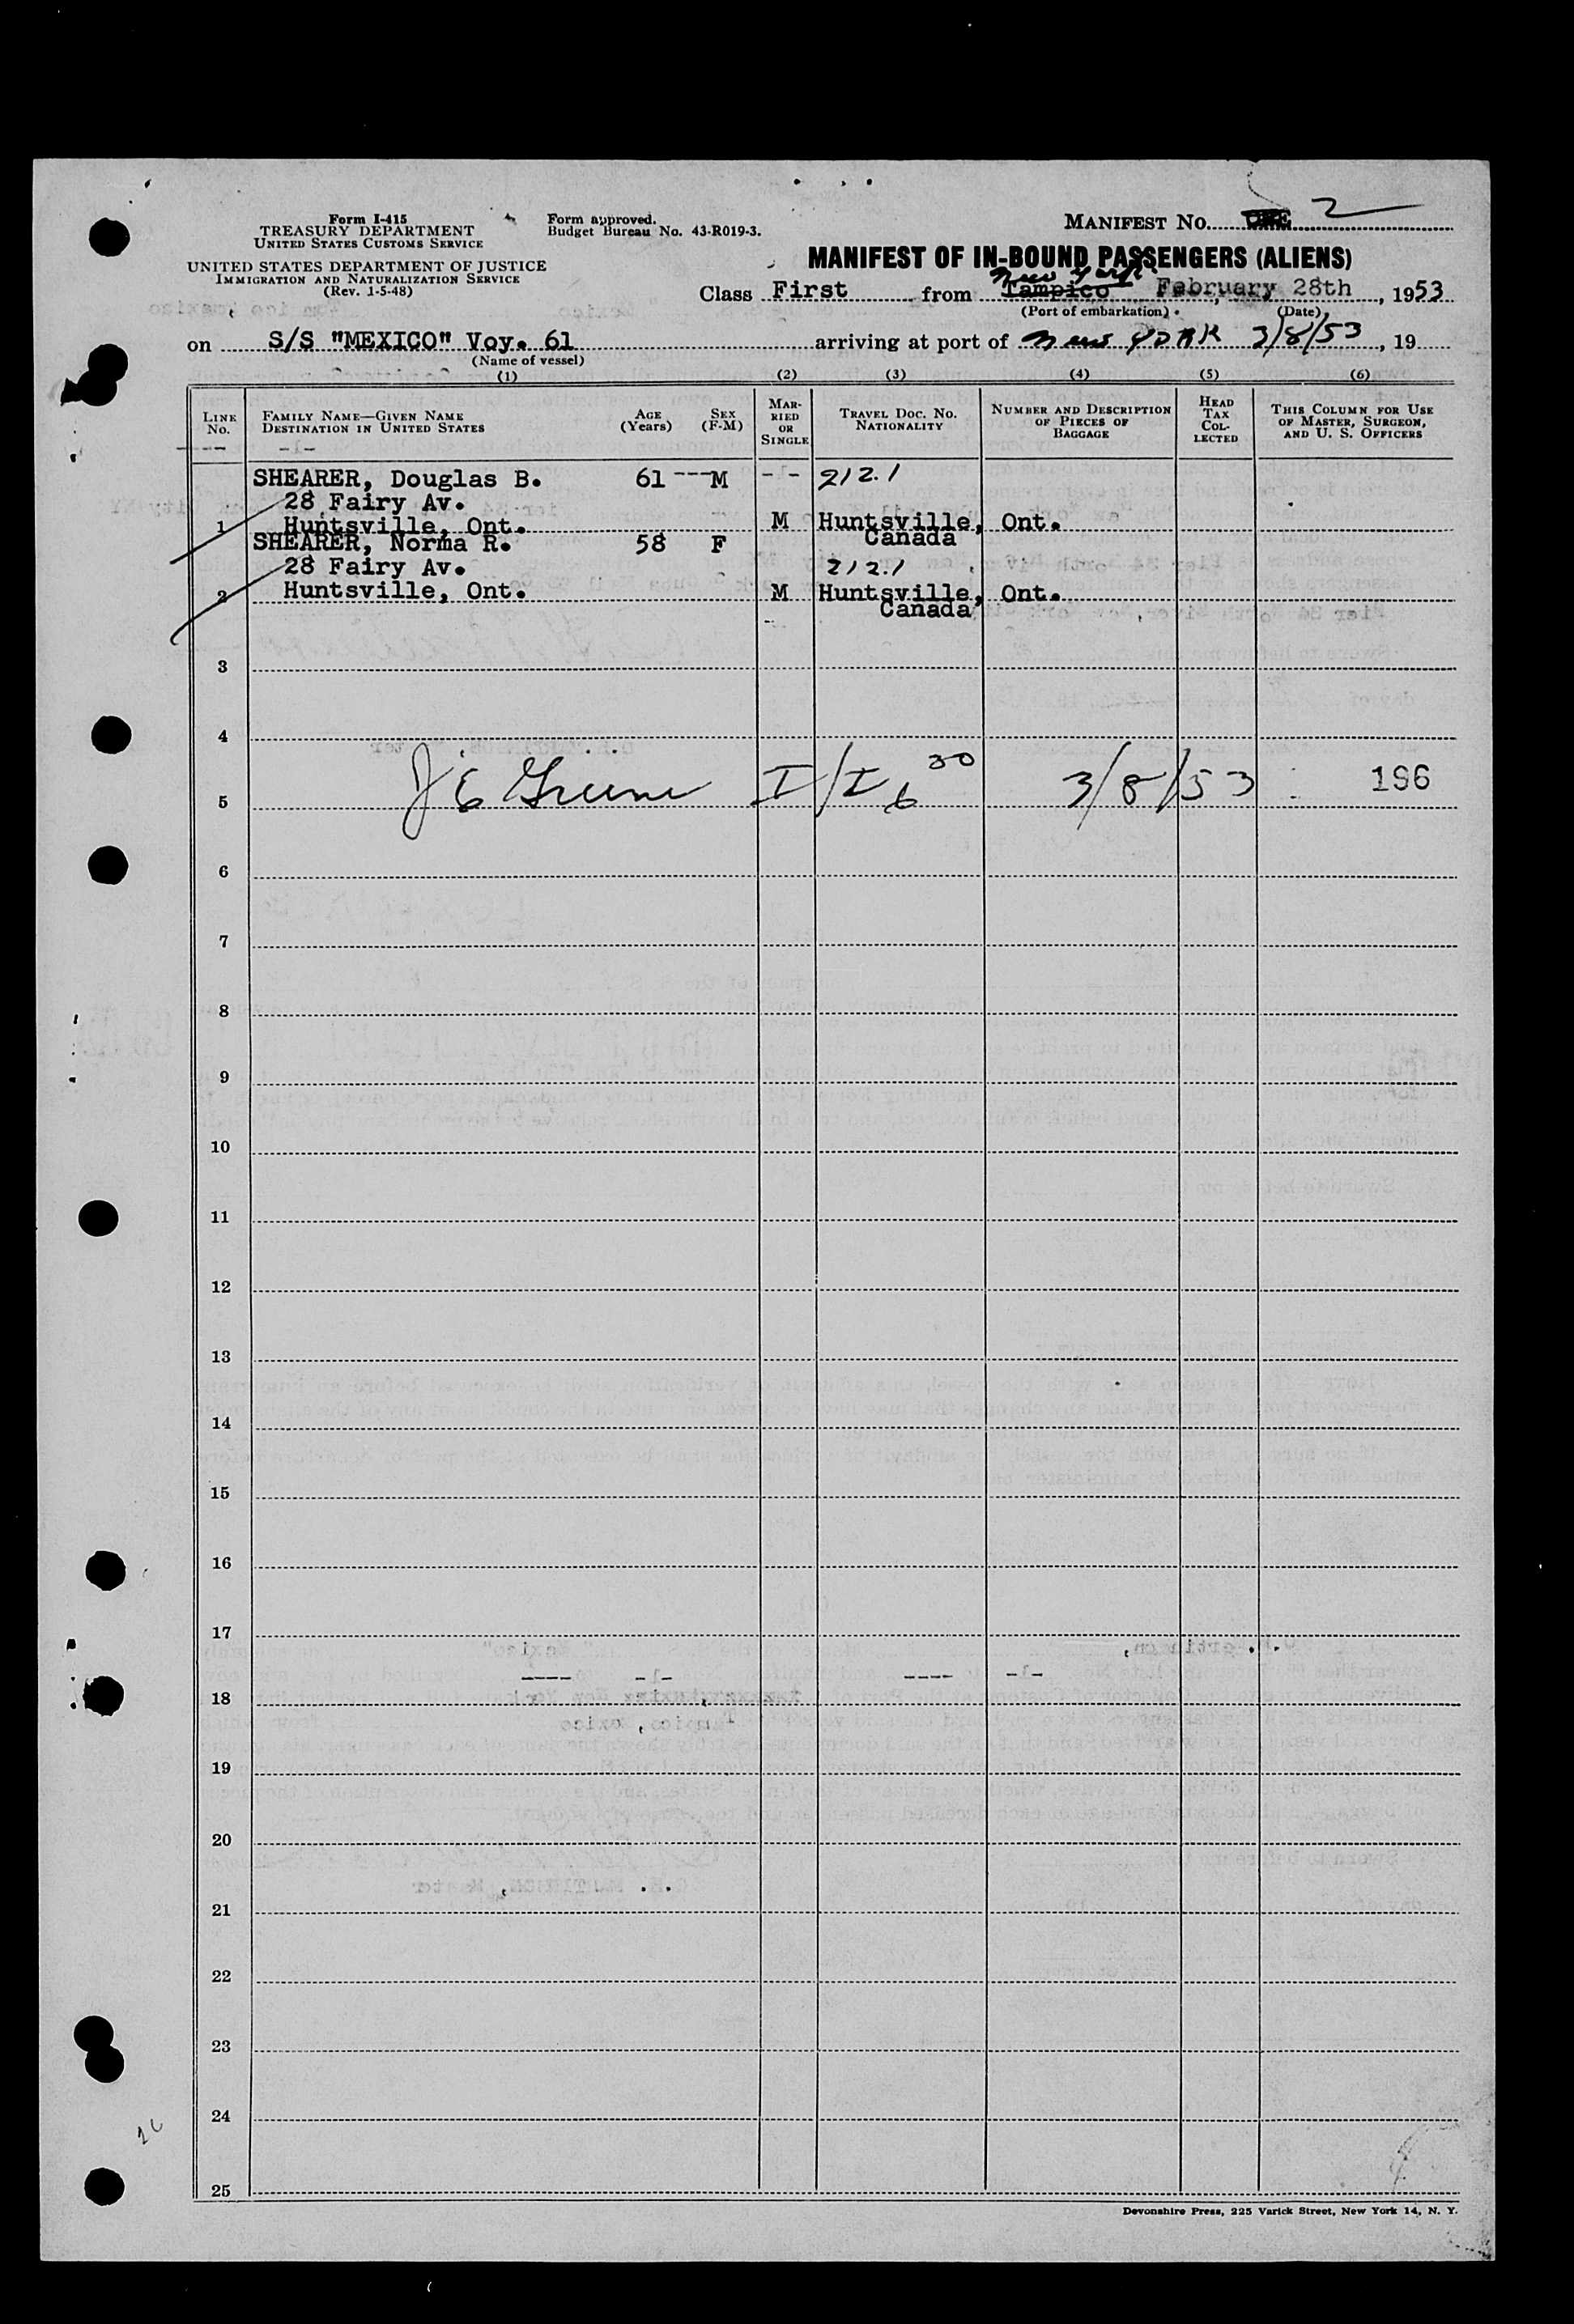 Form I-415
TREASURY DEPARTMENT
UNITED STATES CUSTOMS SERVICE
Form approved.
Budget Bureau No. 43-R019-3.
MANIFEST NO. ONE 2
UNITED STATES DEPARTMENT OF JUSTICE
IMMIGRATION AND NATURALIZATION SERVICE
(Rev. 1-5-48)
MANIFEST OF IN-BOUND PASSENGERS (ALIENS)
New York
Class First from Tampico, February 28th, 1953
(Port of embarkation) (Date)
on S/S "MEXICO" Voy. 61 arriving at port of New YORK 3/8/53, 19
(Name of vessel)
(1) (2) (3) (4) (5) (6)
LINE NO.
FAMILY NAME—GIVEN NAME
DESTINATION IN UNITED STATES
AGE (Years)
SEX (F-M)
MARRIED OR SINGLE
TRAVEL DOC. NO.
NATIONALITY
NUMBER AND DESCRIPTION OF PIECES OF BAGGAGE
HEAD TAX COLLECTED
THIS COLUMN FOR USE OF MASTER, SURGEON, AND U. S. OFFICERS
---- -1-
SHEARER, Douglas B. 61 --- M -1- 212.1
28 Fairy Av.
1 Huntsville, Ont. M Huntsville, Ont.
Canada
SHEARER, Norma R. 58 F
28 Fairy Av. 212.1
2 Huntsville, Ont. M Huntsville, Ont.
Canada
3
4
5 J E Greene I/I 6 30 3/8/53 196
6
7
8
9
10
11
12
13
14
15
16
17
18
19
20
21
22
23
24
25
Devonshire Press, 225 Varick Street, New York 14, N. Y.